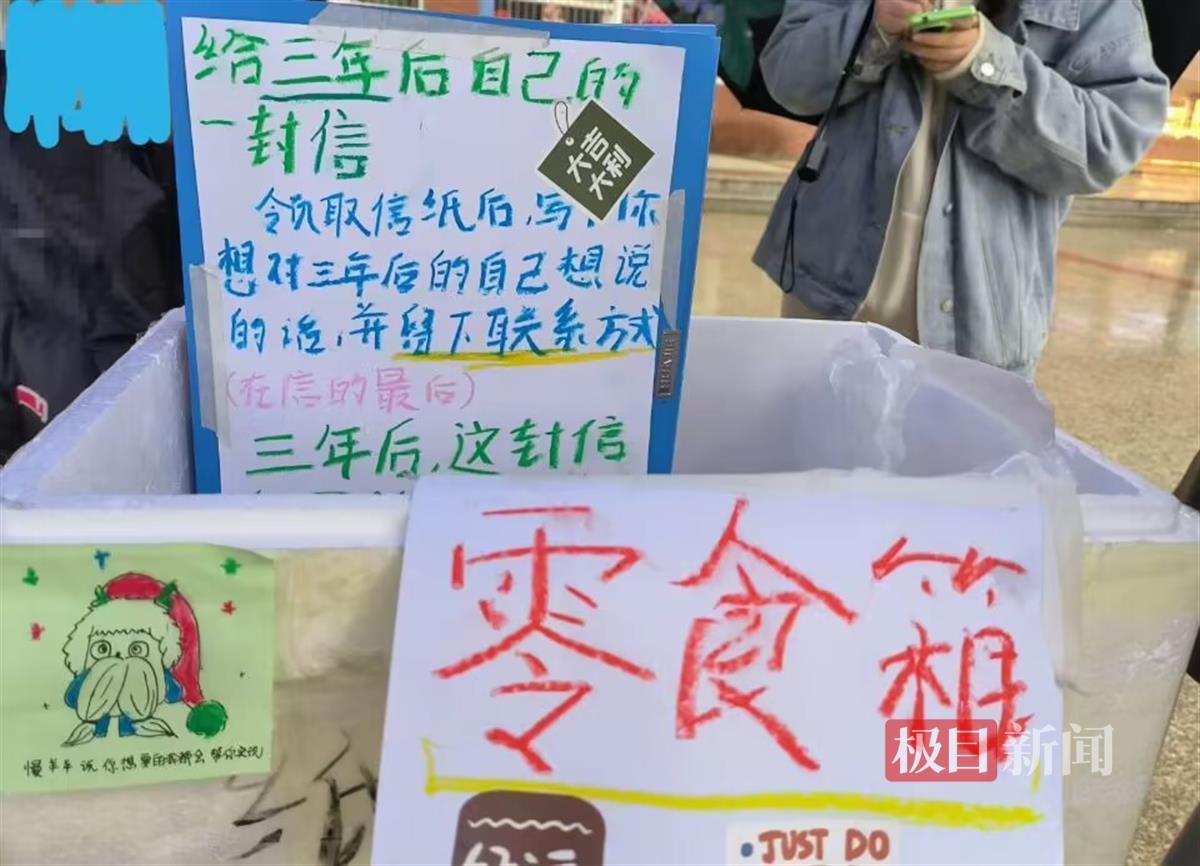 给三年后自己的
一封信
大吉
大利
领取信纸后,写下你
想对三年后的自己想说
的话,并留下联系方式
(在信的最后)
三年后,这封信
零食箱
慢羊羊说你想要的我都会帮你实现
极目新闻
好运
JUST DO